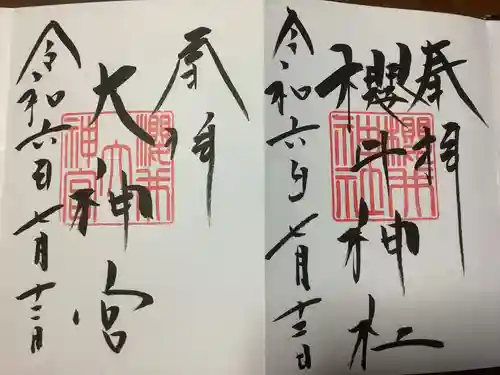 奉拝
櫻井神社
櫻井
神社
令和六年七月十二日
奉拝
大神宮
櫻井
大
神宮
令和六年七月十二日